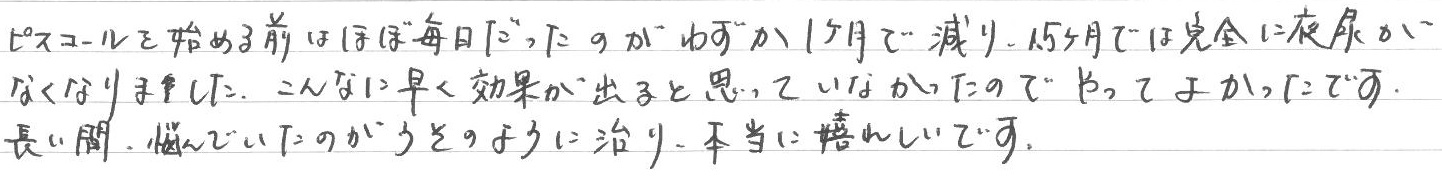 ピスコールを始める前はほぼ毎日だったのがわずか1ヶ月で減り、1.5ヶ月では完全に夜尿が
なくなりました。こんなに早く効果が出ると思っていなかったのでやってよかったです。
長い間、悩んでいたのがうそのように治り、本当に嬉れしいです。